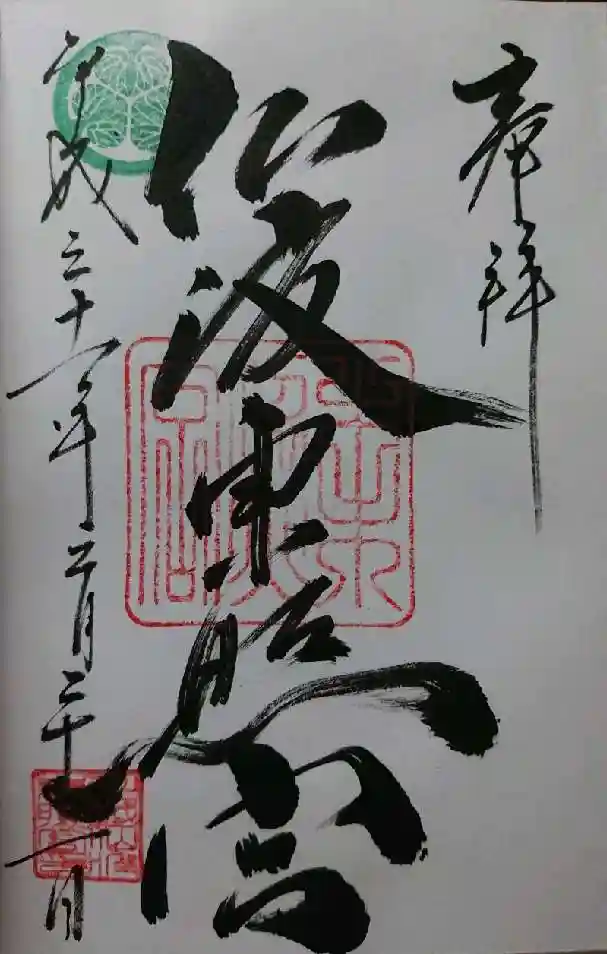 奉拝
仙波東照宮
平成三十一年二月二十一日